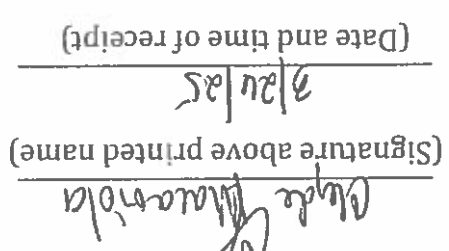 Clyde
(Signature above printed name)
3/24/25
(Date and time of receipt)